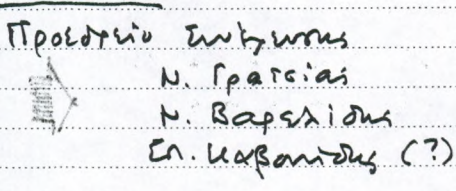 Προεδρείο Συνέλευσης
Ν. Γρατσίας
Ν. Βαρελίδης
Σπ. Καβανίδης (?)